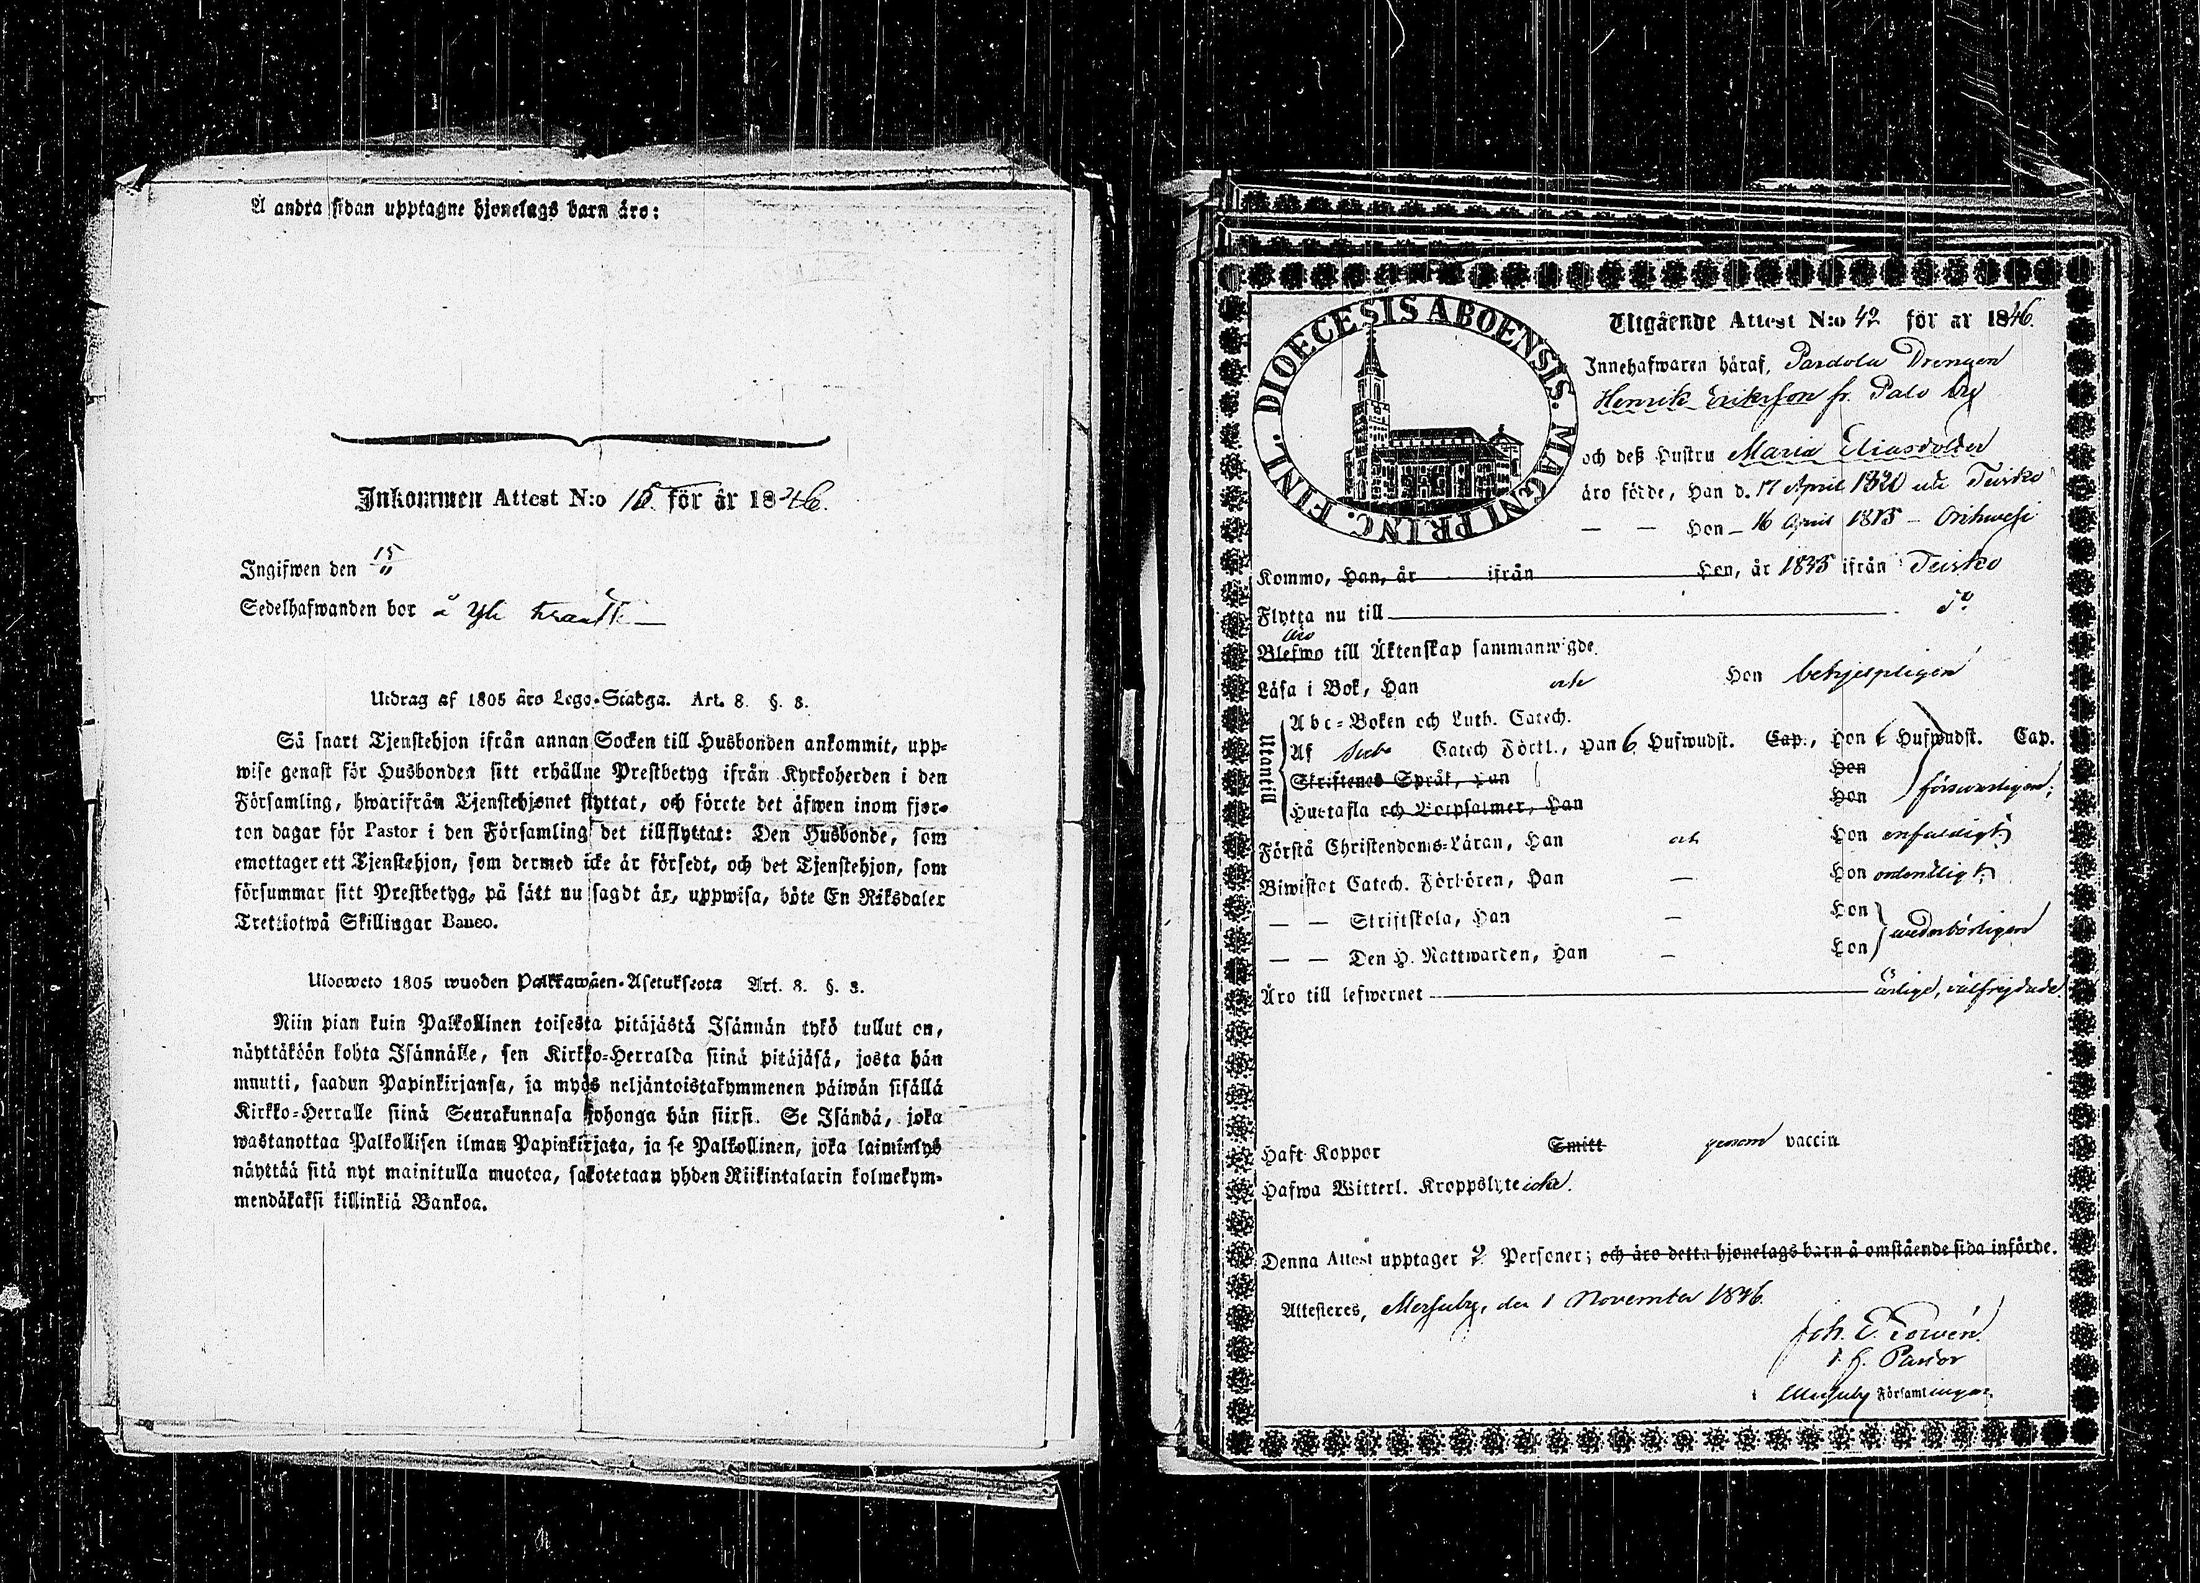 Å andra sidan upptagne hjonelags barn äro:
Inkommen Attest N:o 15. för år 1846.
Ingifwen den 15/11
Sedelhafwanden bor å Yli
Utdrag af 1805 åro Lego-Stadga. Art. 8. §. 8.
Så snart Tjenstehjon ifrån annan Socken till Husbonden ankommit, upp-
wise genast för Husbonden sitt erhållne Prestbetyg ifrån Kyrkoherden i den
Församling, hwarifrån Tjenstehjonet flyttat, och förete det äfwen inom fjor-
ton dagar för Pastor i den Församling det tillflyttat: Den Husbonde, som
emottager ett Tjenstehjon, som dermed icke är försedt, och det Tjenstehjon, som
försummar sitt Prestbetyg, på sätt nu sagdt är, uppwisa, böte En Riksdaler
Trettiotwå Skillingar Banco.
Ulosweto 1805 wuoden Palkkawäen-Asetuksesta Art. 8. §. 8.
Niin pian kuin Palkollinen toisesta pitäjästä Isännän tykö tullut on,
näyttäköön kohta Isännälle, sen Kirkko-Herralda siinä pitäjäsä, josta hän
muutti, saadun Papinkirjansa, ja myös neljäntoistakymmenen päiwän sisällä
Kirkko-Herralle siinä Seurakunnasa johonga hän siirsi. Se Isändä, joka
wastanottaa Palkollisen ilman Papinkirjata, ja se Palkollinen, joka laiminlyö
näyttää sitä nyt mainitulla muotoa, sakotetaan yhden Riikintalarin kolmekym-
mendäkaksi killinkiä Bankoa.
DIOECESIS ABOENSIS. MAGNI PRINC. FINL.
Utgående Attest N:o 42 för år 1846.
Innehafwaren häraf, Pardola Drengen
Henrik Eriksson fr. Palo by
och deß Hustru Maria Eliasdotter
äro födde, Han d. 17 April 1821 uti Teisko
— — Hon — 16 April 1815 – Orihwesi
Kommo, Han, år ifrån Hon, år 1835 ifrån Teisko
Flytta nu till do
äro
Blefwo till Äktenskap sammanwigde.
Läsa i Bok, Han och Hon behjelpligen
Utantill
Abc-Boken och Luth. Catech.
Af Catech Förkl., Han 6 Hufwudst. Cap., Hon 6 Hufwudst. Cap.
Skriftenes Språk, Han Hon
Hustafla och Botpsalmer, Han Hon försvarligen;
Förstå Christendoms-Läran, Han och Hon enfaldigt;
Biwistat Catech. Förhören, Han — Hon ordentligt;
— — Skriftskola, Han — Hon
— — Den H. Nattwarden, Han — Hon wederbörligen
Äro till lefwernet ärlige, välfrejdade.
Haft Koppor Smitt genom vaccin
Hafwa Witterl. Kroppslyte icke.
Denna Attest upptager 2 Personer; och äro detta hjonelags barn å omstående sida införde.
Attesteres, Messuby, den 1 November 1846.
Joh. E.
v. Pastor
i Messuby Församlingar